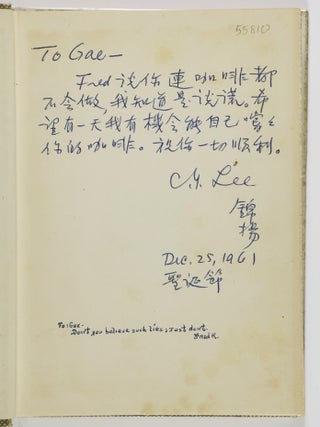 55810
To Gae—
Fred说你連咖啡都
不会做,我知道是说谎。希
望有一天我有機会能自己嚐々
你的咖啡。祝你一切順利。
C. Y. Lee
錦
揚
Dec. 25, 1961
聖诞節
To: Gae-
Don't you believe such lies; Just don't.